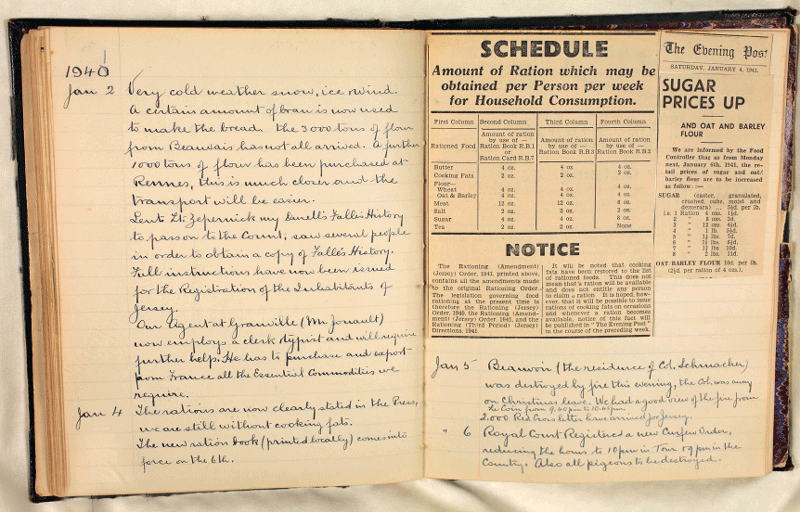 1940
1
Jan 2 Very cold weather snow, ice wind.
A certain amount of bran is now used
to make the bread. the 3000 tons of flour
from Beauvais has not all arrived. A further
1000 tons of flour has been purchased at
Rennes, this is much closer and the
transport will be easier.
Lent Lt. Zepernick my Durell's Falle's History
to pass on to the Count; saw several people
in order to obtain a copy of Falle's History.
Full instructions have now been issued
for the Registration of the Inhabitants of
Jersey.
Our Agent at Granville (Mr Jouault)
now employs a clerk typist and will require
further help. He has to purchase and export
from France all the Essential Commodities we
require.
Jan 4 The rations are now clearly stated in the Press,
we are still without cooking fats.
The new ration book (printed locally) comes into
force on the 6th.
SCHEDULE
Amount of Ration which may be
obtained per Person per week
for Household Consumption.
First Column Second Column Third Column Fourth Column
Rationed Food Amount of ration by use of— Ration Book R.B.1 or Ration Card R.B.7 Amount of ration by use of— Ration Book R.B.3 Amount of ration by use of— Ration Book R.B.2
Butter 4 oz. 4 oz. 4 oz.
Cooking Fats 2 oz. 2 oz. 2 oz.
Flour—
Wheat 4 oz. 4 oz. 4 oz.
Oat & Barley 4 oz. 4 oz. 4 oz.
Meat 12 oz. 12 oz. 6 oz.
Salt 2 oz. 3 oz. 2 oz.
Sugar 4 oz. 4 oz. 8 oz.
Tea 2 oz. 2 oz. None
NOTICE
The Rationing (Amendment)
(Jersey) Order, 1941, printed above,
contains all the amendments made
to the original Rationing Order.
The legislation governing food
rationing at the present time is
therefore the Rationing (Jersey)
Order, 1940, the Rationing (Amend-
ment) (Jersey) Order, 1941, and the
Rationing (Third Period) (Jersey)
Directions, 1941.
It will be noted that cooking
fats have been restored to the list
of rationed foods. This does not
mean that a ration will be available
and does not entitle any person
to claim a ration. It is hoped, how-
ever, that it will be possible to issue
rations of cooking fats on occasions
and whenever a ration becomes
available, notice of this fact will
be published in "The Evening Post"
in the course of the preceding week.
The Evening Post
SATURDAY, JANUARY 4, 1941.
SUGAR
PRICES UP
AND OAT AND BARLEY
FLOUR
We are informed by the Food
Controller that as from Monday
next, January 6th, 1941, the re-
tail prices of sugar and oat/
barley flour are to be increased
as follow:—
SUGAR (caster, granulated,
crushed, cube, moist and
demerara) ... 5½d. per lb.
i.e. 1 Ration 4 ozs. 1½d.
2 " 8 ozs. 3d.
3 " 12 ozs. 4½d.
4 " 1 lb. 5½d.
5 " 1¼ lbs. 7d.
6 " 1½ lbs.
7 " 1¾ lbs. 10d.
8 " 2 lbs. 11d.
OAT/BARLEY FLOUR 10d. per lb.
(2½d. per ration of 4 ozs.).
Jan 5 Beauvoir (the residence of Col. Schmacher)
was destroyed by fire this evening, the Col. was away
on Christmas leave. We had a good view of the fire from
Le Coin from 9.40 pm to 10.45 pm.
2,000 Red Cross letters have arrived for Jersey.
" 6 Royal Court Registered a new Curfew Order,
reducing the hours to 10 pm in Town & 9 pm in the
Country. Also all pigeons to be destroyed.